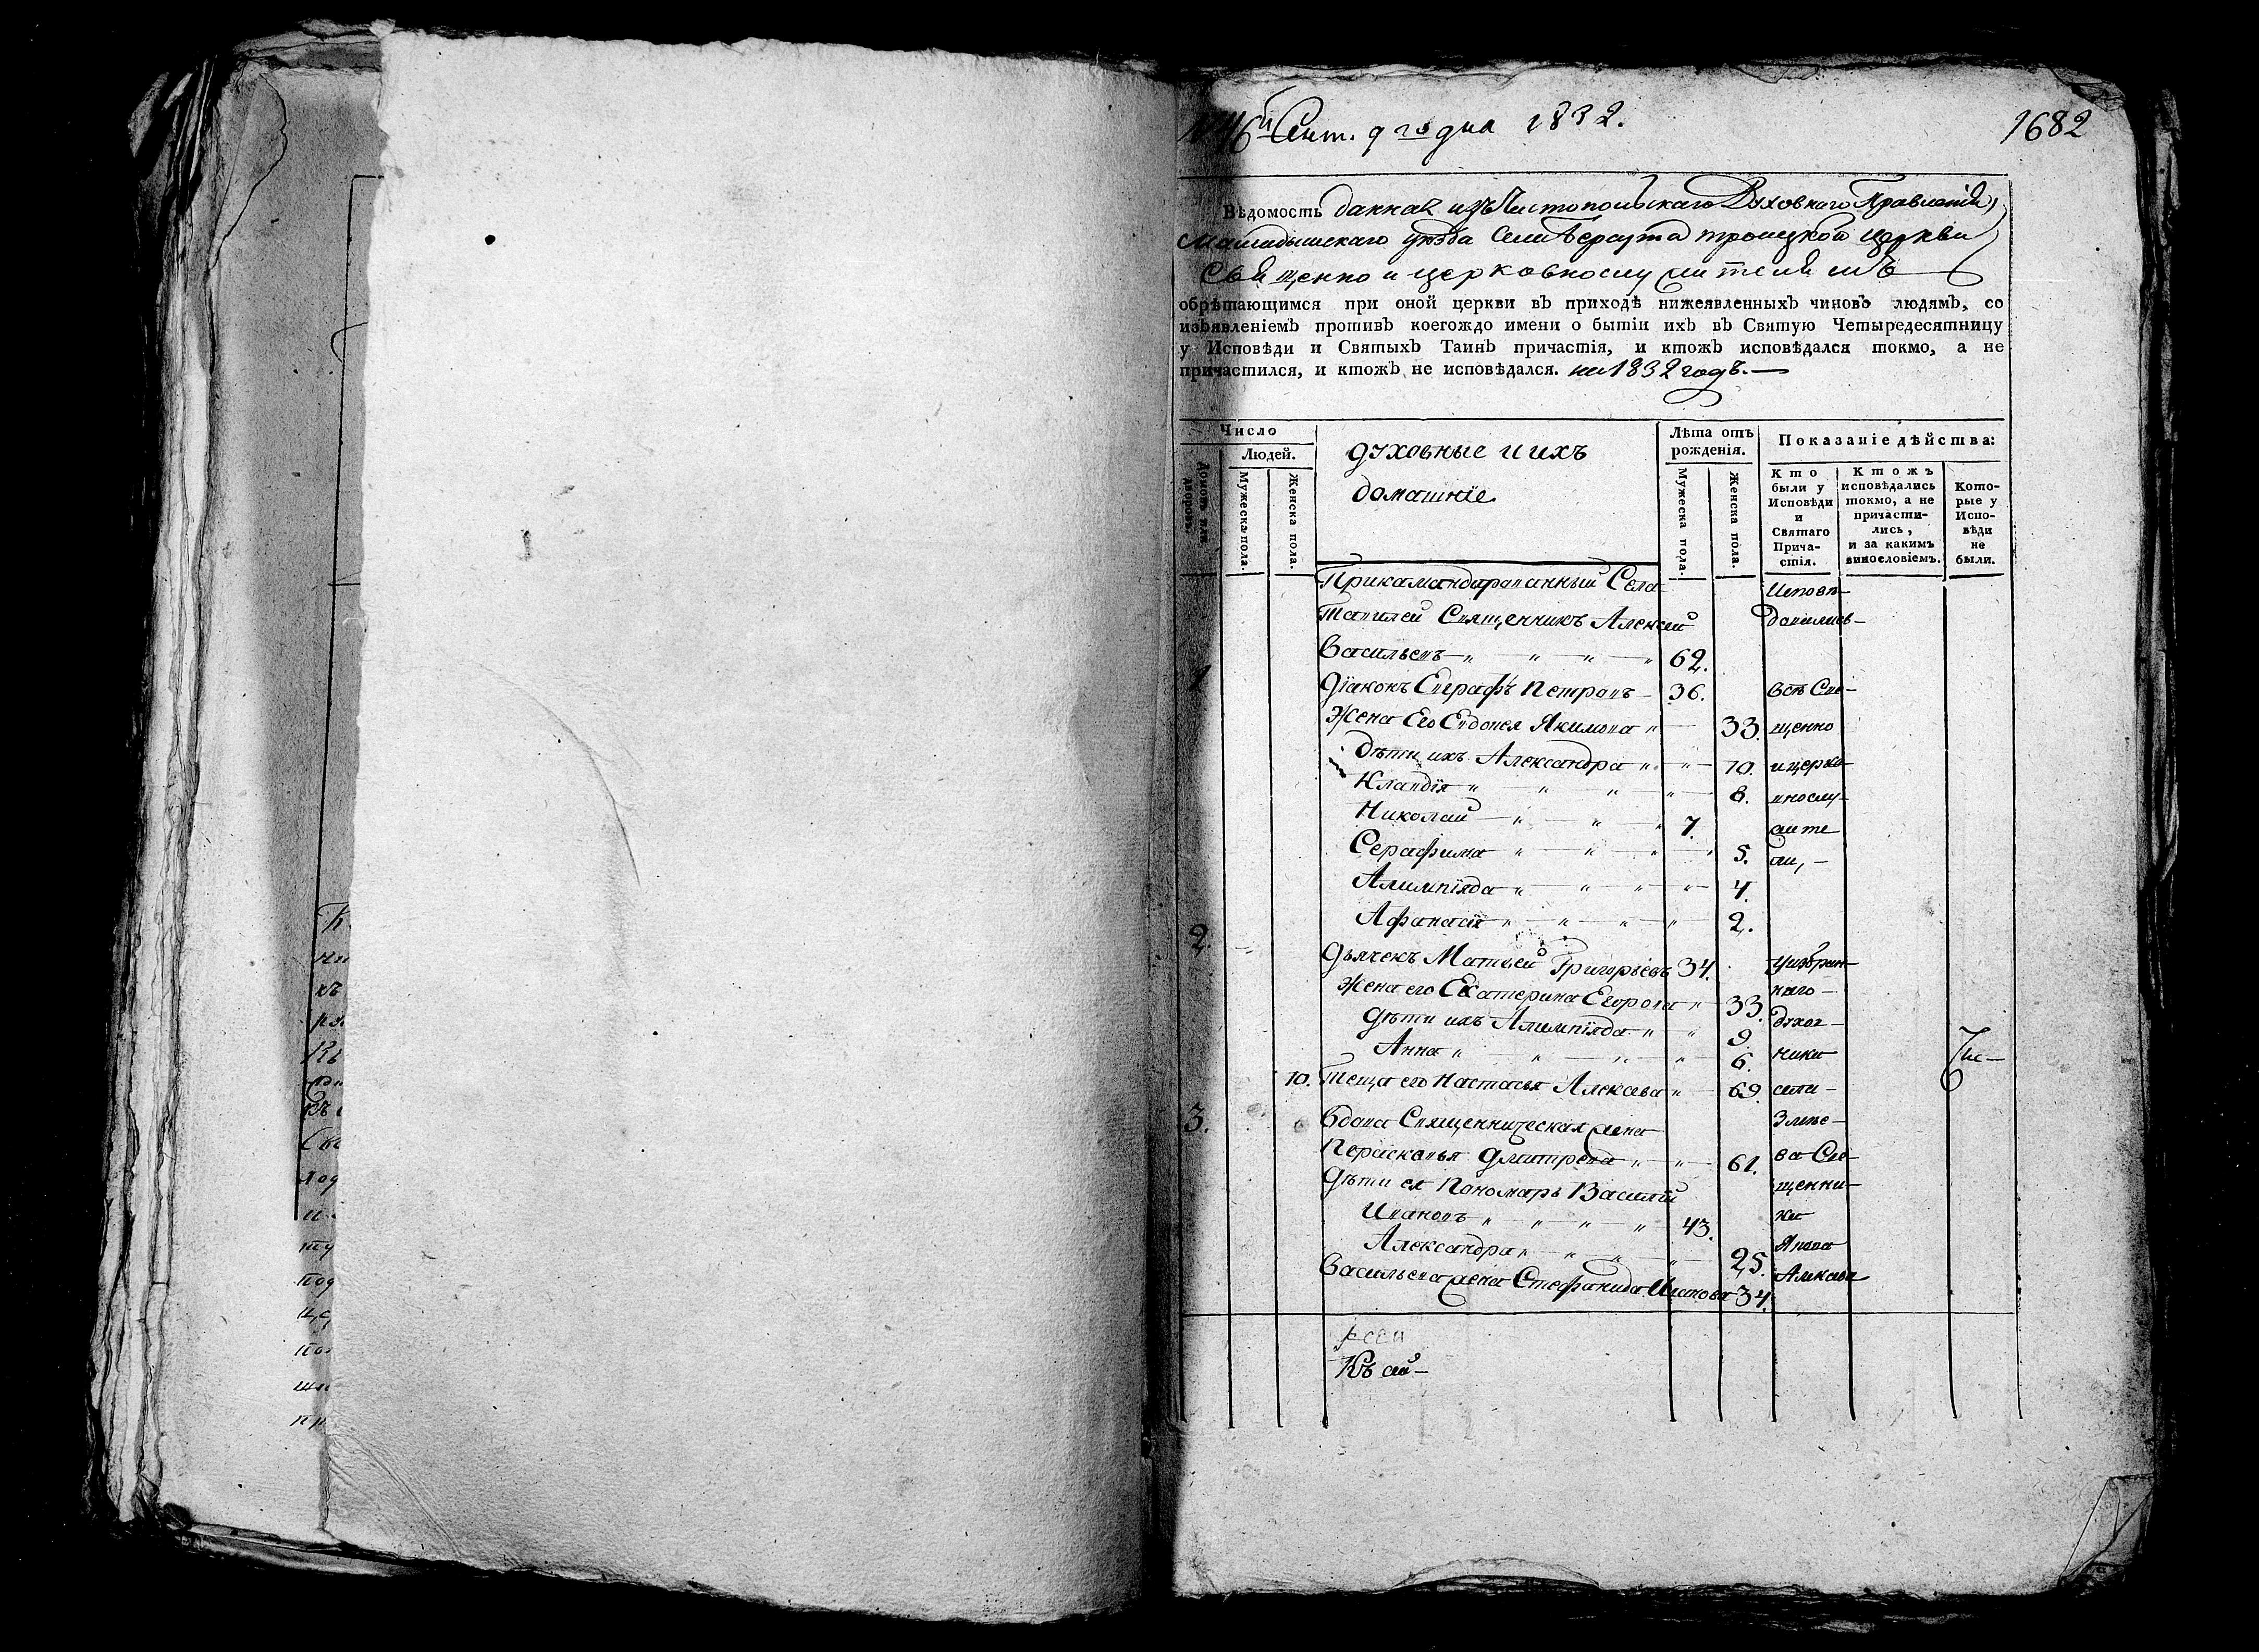 Сент. 9 го дня 1832.
1682
Вѣдомость данная изъ Чистопольскаго Духовнаго Правленія,
Мамадышскаго уѣзда Села Берсута троицкой церкви
Священно и церковнослужителямъ
обрѣтающимся при оной церкви въ приходѣ нижеявленныхъ чиновъ людямъ, со
изъявленіемъ противъ коегождо имени о бытіи ихъ въ Святую Четыредесятницу
у Исповѣди и Святыхъ Таинъ причастія, и ктожъ исповѣдался токмо, а не
причастился, и ктожъ не исповѣдался. на 1832 годъ.
Число
Людей.
Домовъ или дворовъ.
Мужеска пола.
Женска пола.
духовные и ихъ
домашніе
Лѣта отъ
рожденія.
Мужеска пола.
Женска пола.
Показаніе дѣйства:
Кто
были у
Исповѣди
и
Святаго
Прича-
стія.
Ктожъ
исповѣдались
токмо, а не
причасти-
лись,
и за какимъ
винословіемъ.
Кото-
рые у
Испо-
вѣди
не
были.
Прикамандированный Села Исповѣ-
Священникъ Алексей довались-
Васильевъ 62.
1 Діаконъ Евграфъ Петровъ 36. всѣ Свя-
Жена Его Евдокея Якимова 33. щенно
Дѣти ихъ Александра 10. и церко-
Клавдія 8. внослу-
Николай 7. жите
Серафима 5. ли,
Алимпіяда 4.
Афанасія 2.
2. Дьячекъ Матвей Григорьевъ 34. у избран-
Жена его Екатерина Егорова 33. наго
Дѣти ихъ Алимпіяда 9. духов-
Анна 6. ника
10. Теща его Настасья Алексева 69. села
3. Вдова Священническая жена
Перасковья Дмитрева 61. ва Свя-
Дѣти ея Пономарь Василій щенни-
Ивановъ 43. ка
Александра 25.
Васильева жена Стефанида Иванова 34. Алексея